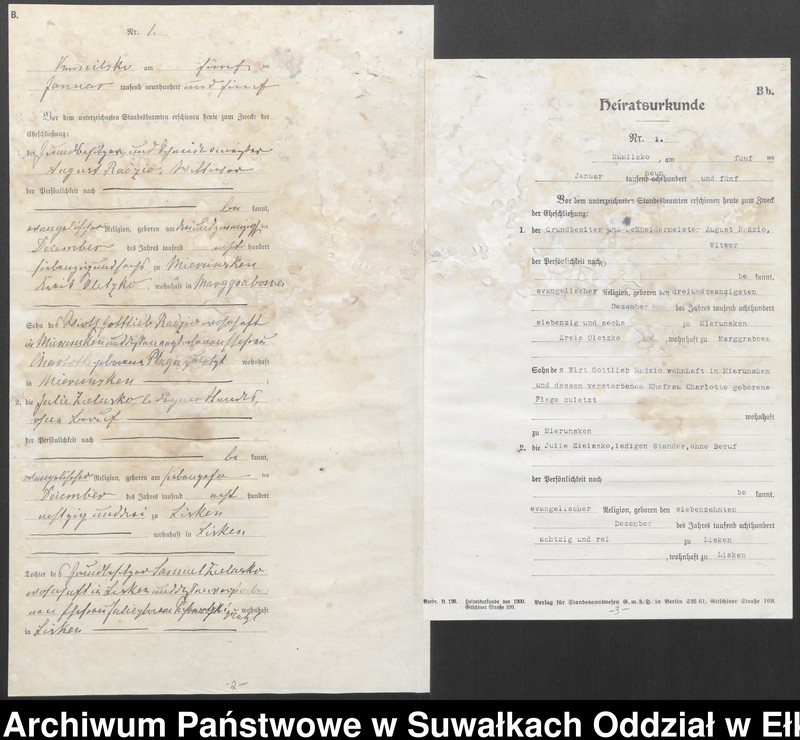 B.
Nr. 1.
am fünf ten
Januar tausend neunhundert und fünf
Vor dem unterzeichneten Standesbeamten erschienen heute zum Zwecke der
Eheschließung:
der Grundbesitzer und Schneidermeister
August Radzio, Wittwer
der Persönlichkeit nach
be kannt,
evangelischer Religion, geboren am dreiundzwanzigsten
December des Jahres tausend acht hundert
siebenzig und sechs zu Mierunsken
Kreis Oletzko, wohnhaft in Marggrabowa
Sohn des Wirth Gottlieb Radzio wohnhaft
in Mierunsken und dessen verstorbenen Ehefrau
Charlotte geborene Plaga zuletzt wohnhaft
in Mierunsken ;
2. die Julie Zielasko ledigen Standes,
ohne Beruf
der Persönlichkeit nach
be kannt,
evangelischer Religion, geboren am siebenzehn ten
December des Jahres tausend acht hundert
achtzig und drei zu Lisken
wohnhaft in Lisken
Tochter des Grundbesitzer Samuel Zielasko
wohnhaft in Lisken und dessen
Ehefrau Julie geborene zuletzt wohnhaft
in Lisken
-2-
B b.
Heiratsurkunde
Nr. 1.
, am fünf ten
Januar tausend neun achthundert und fünf
Vor dem unterzeichneten Standesbeamten erschienen heute zum Zweck
der Eheschließung:
1. der Grundbesiter und Schneidermeister August Radzio,
Witwer
der Persönlichkeit nach
be kannt,
evangelischer Religion, geboren den dreiundzwanzigsten
Dezember des Jahres tausend achthundert
siebenzig und sechs zu Mierunsken
Kreis Oletzko , wohnhaft zu Marggrabowa
Sohn des Wirt Gottlieb Radzio wohnhaft in Mierunsken
und dessen verstorbenen Ehefrau Charlotte geborene
Plaga zuletzt
wohnhaft
zu Mierunsken
2. die Julie Zielasko, ledigen Standes, ohne Beruf
der Persönlichkeit nach
be kannt,
evangelischer Religion, geboren den siebenzehnten
Dezember des Jahres tausend achthundert
achtzig und rei zu Lisken
, wohnhaft zu Lisken
Heiratsurkunde vor 1900. Verlag für Standesamtswesen G. m. b. H. in Berlin SW 61, Gitschiner Straße 109.
Gitschiner Straße 109.
-3-
Archiwum Państwowe w Suwałkach Oddział w Ełk